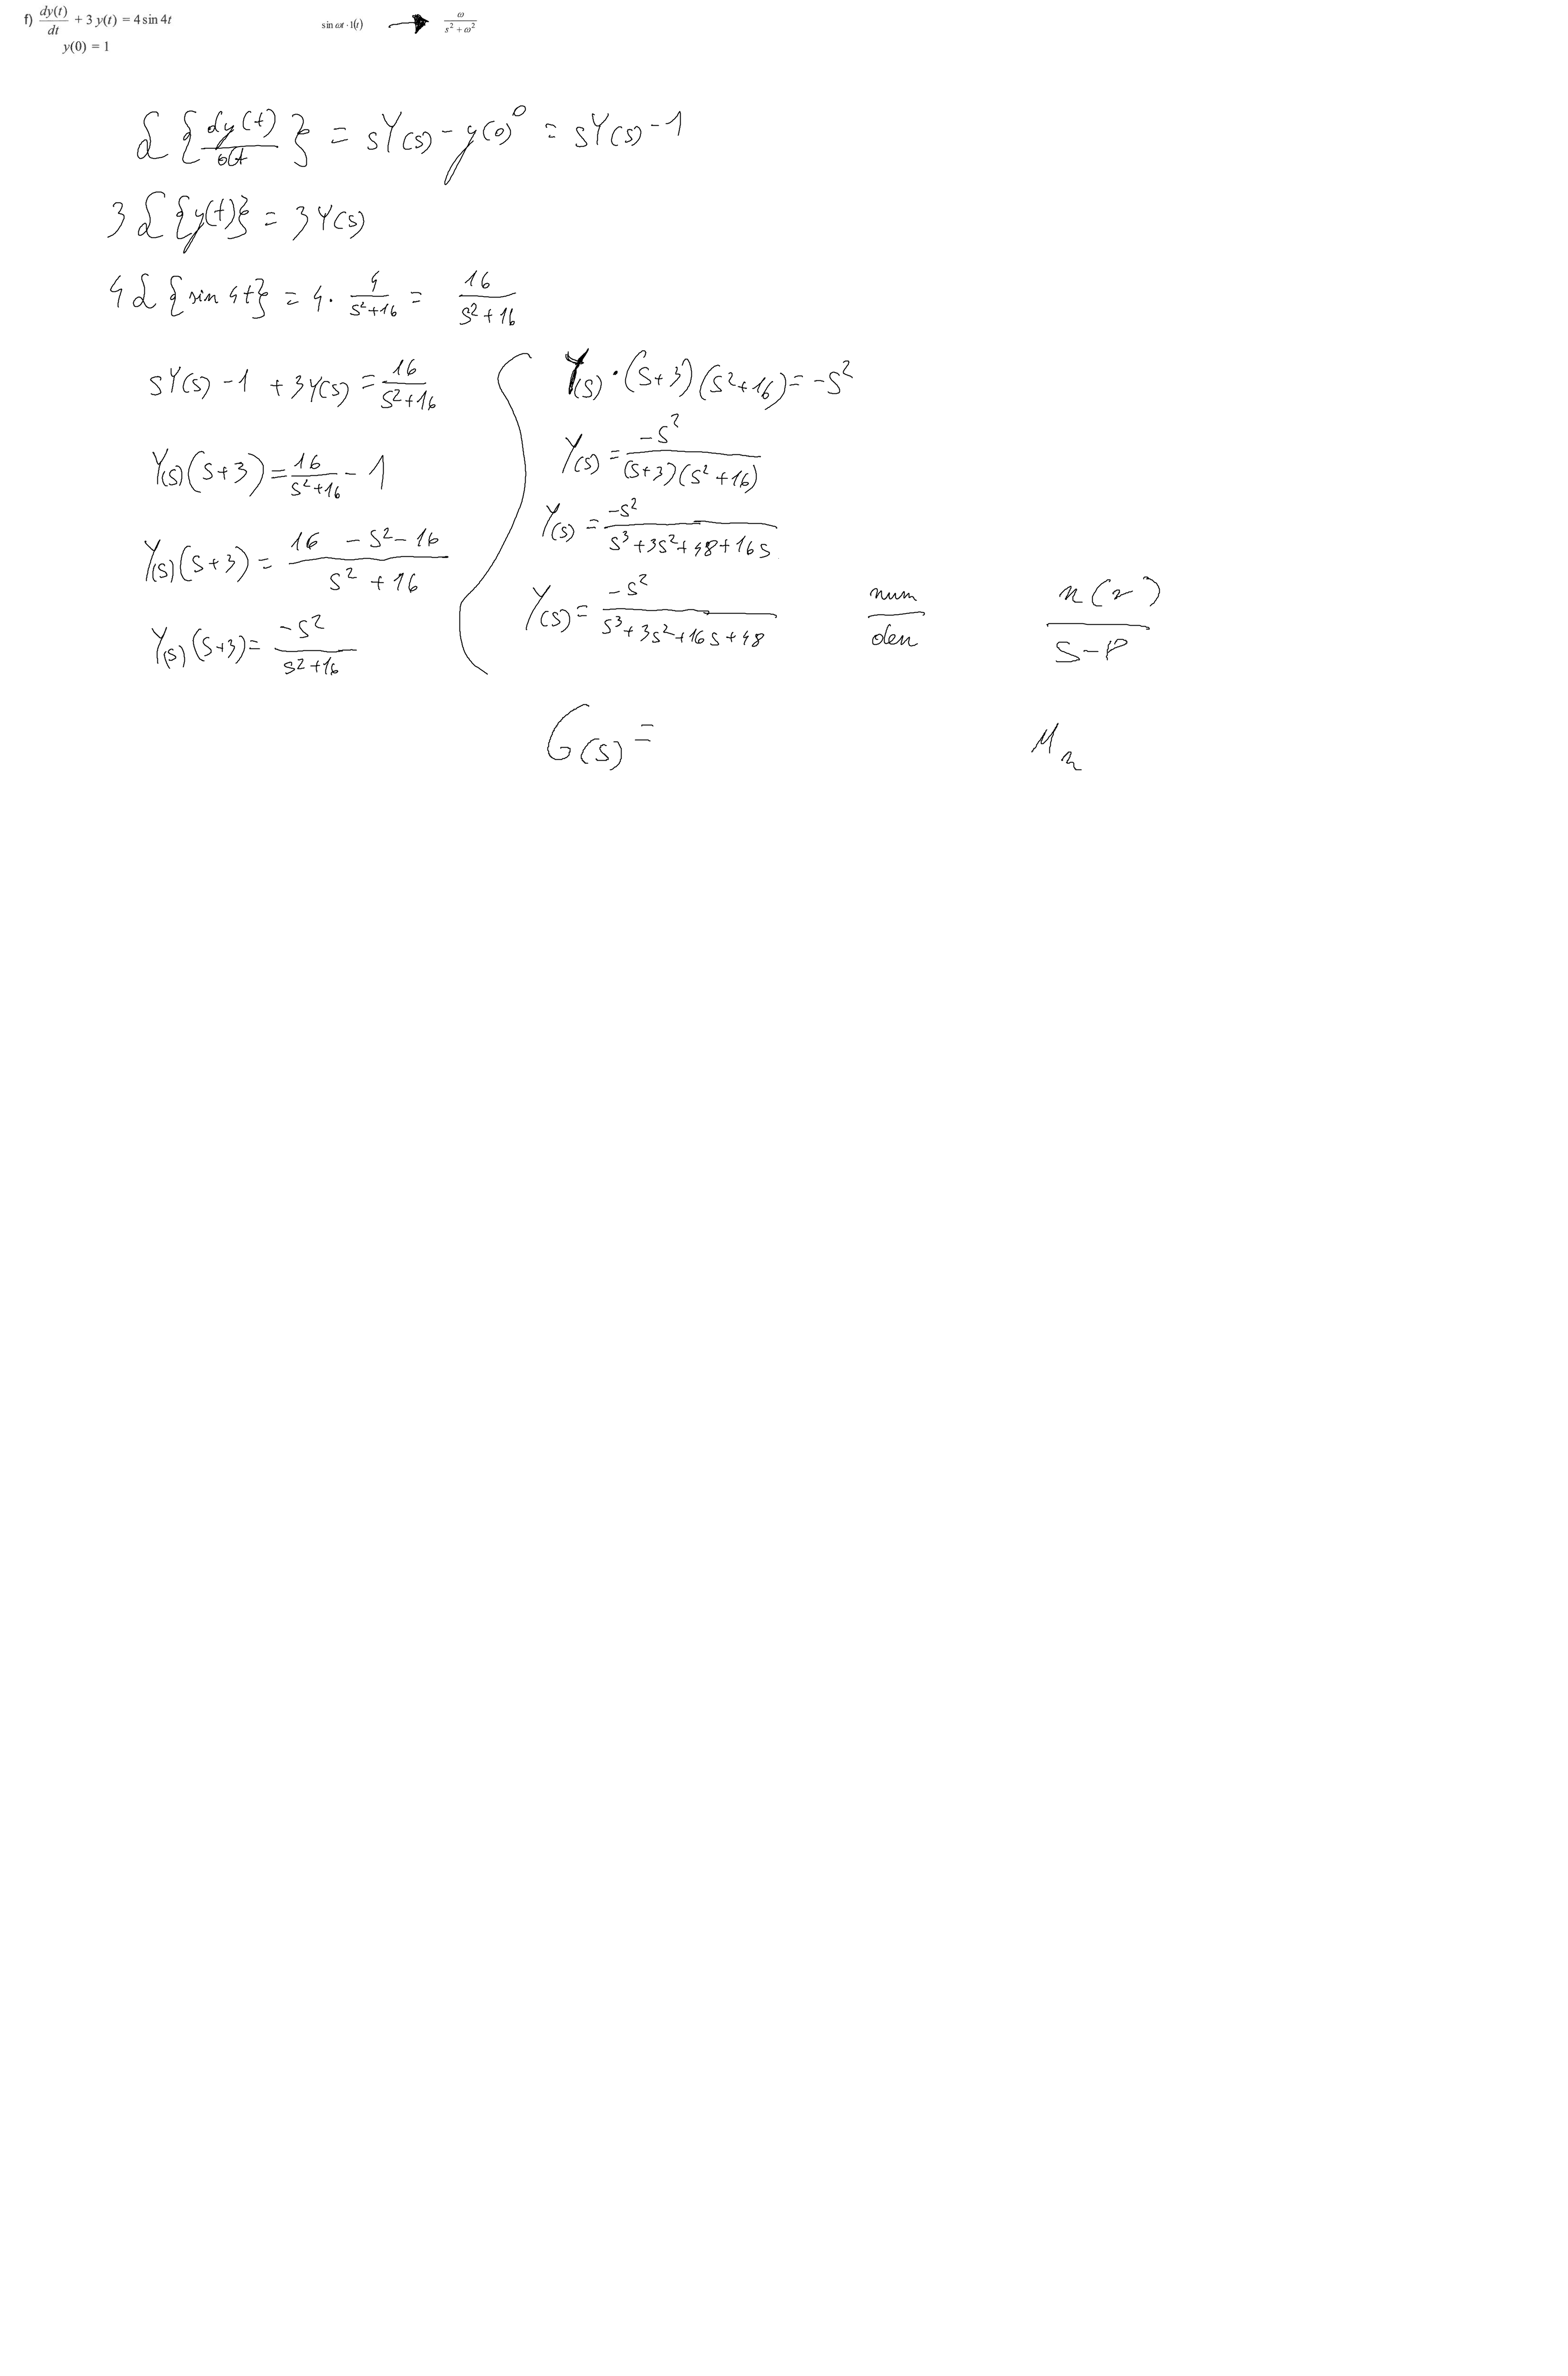 f) \frac{dy(t)}{dt} + 3 y(t) = 4 sin 4t
sin ωt · 1(t) → \frac{ω}{s² + ω²}
y(0) = 1
ℒ {\frac{dy(t)}{dt}} = sY(s) - y(0)⁰ = sY(s) - 1
3 ℒ {y(t)} = 3Y(s)
4 ℒ {sin 4t} = 4 · \frac{4}{s²+16} = \frac{16}{s²+16}
sY(s) - 1 + 3Y(s) = \frac{16}{s²+16}
Y(s)(s+3) = \frac{16}{s²+16} - 1
Y(s)(s+3) = \frac{16 - s² - 16}{s² + 16}
Y(s)(s+3) = \frac{-s²}{s²+16}
Y(s) · (s+3)(s²+16) = -s²
Y(s) = \frac{-s²}{(s+3)(s²+16)}
Y(s) = \frac{-s²}{s³+3s²+48+16s}
Y(s) = \frac{-s²}{s³+3s²+16s+48}
\frac{num}{den}
\frac{n(r)}{s-p}
G(s) =